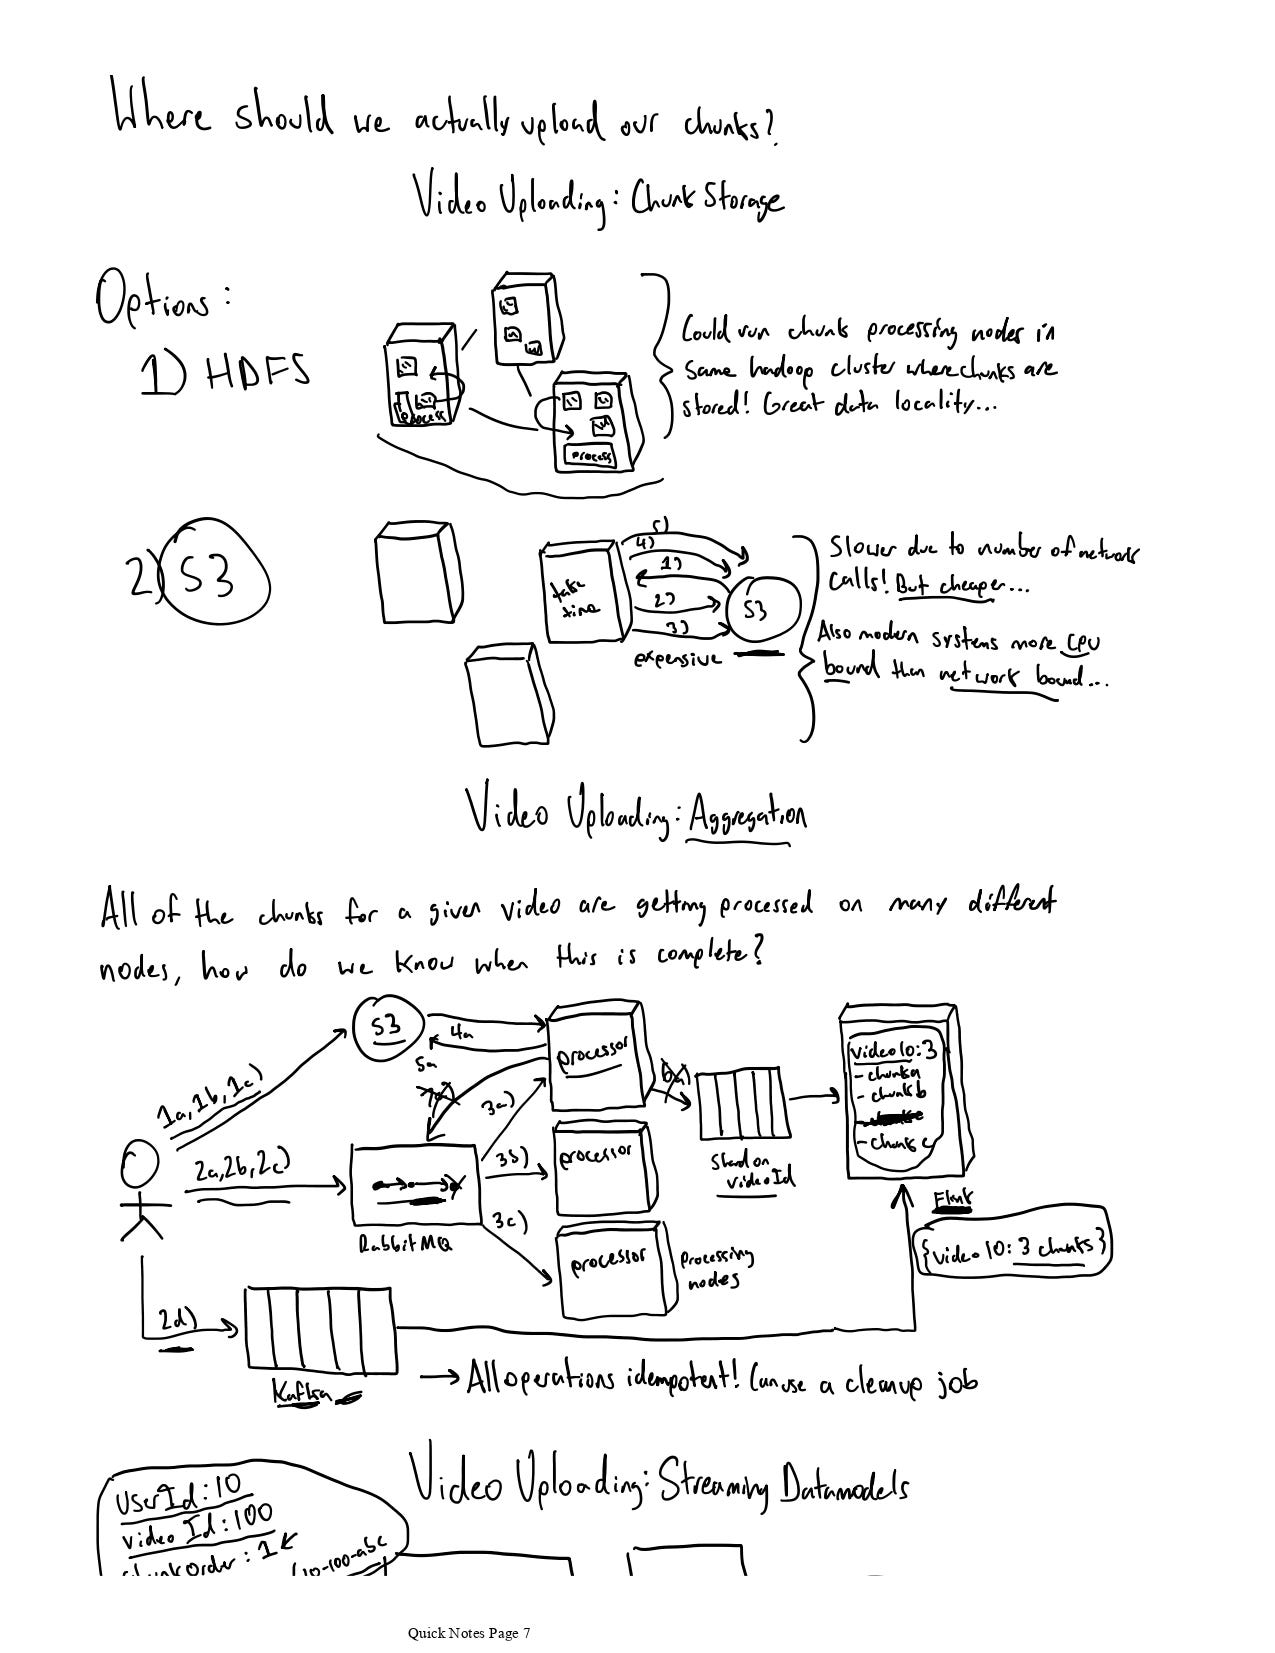 Where should we actually upload our chunks?
Video Uploading: Chunk Storage
Options:
1) HDFS
process
process
Could run chunk processing nodes in
same hadoop cluster where chunks are
stored! Great data locality...
2) S3
5)
4)
1)
2)
3)
S3
expensive
Slower due to number of network
calls! But cheaper...
Also modern systems more CPU
bound than network bound...
Video Uploading: Aggregation
All of the chunks for a given video are getting processed on many different
nodes, how do we know when this is complete?
1a, 1b, 1c)
S3
4a
5a
processor
6a)
2a, 2b, 2c)
3a)
3b)
3c)
RabbitMQ
processor
processor
processing
nodes
Shard on
videoId
video 10: 3
- chunk a
- chunk b
- chunk c
Flink
{video 10: 3 chunks}
2d)
Kafka
→ All operations idempotent! Can use a cleanup job
Video Uploading: Streaming Datamodels
UserId: 10
video Id: 100
chunkOrder: 1
10-100-abc
Quick Notes Page 7